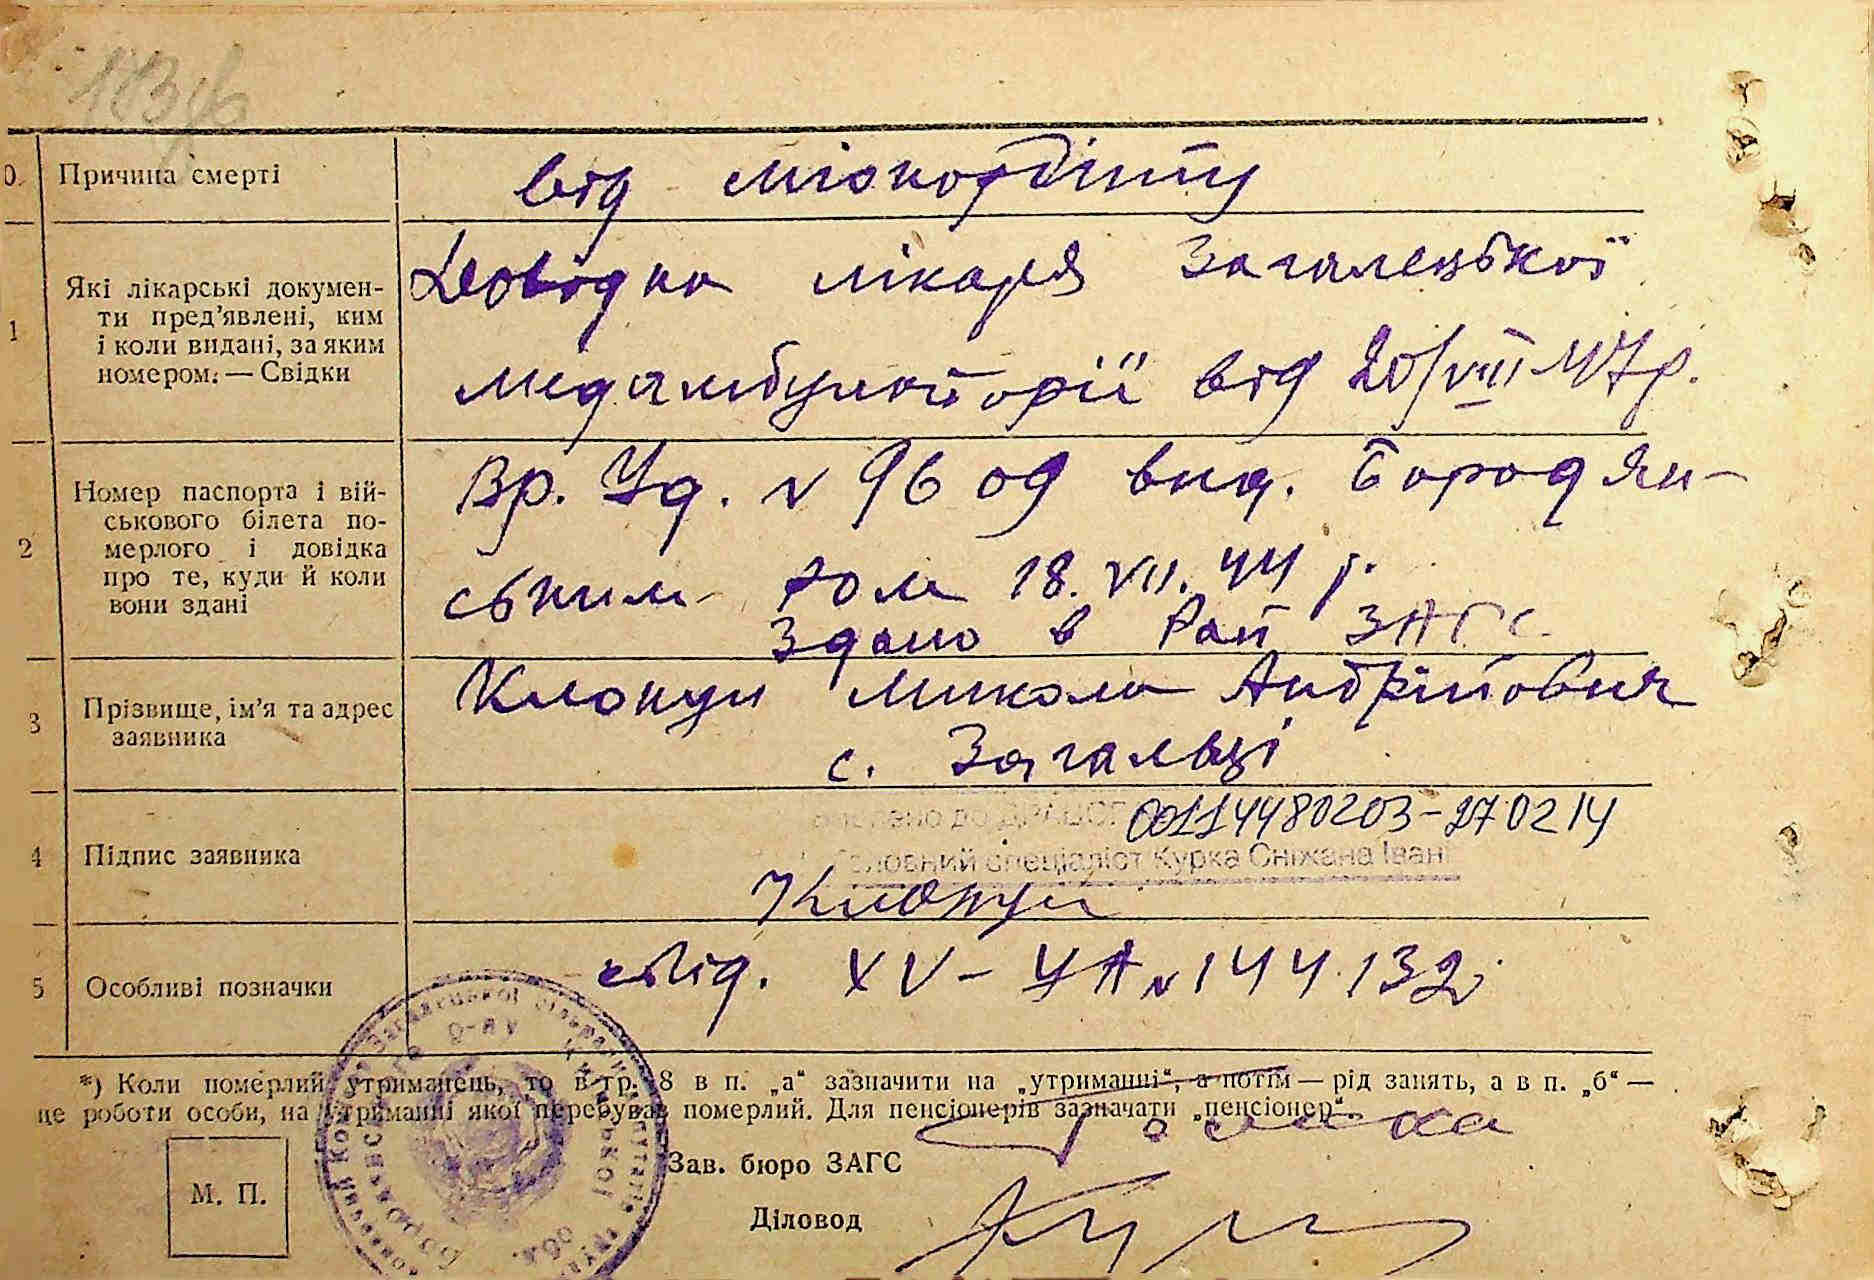 183
0. Причина смерті
від міокордіту
1 Які лікарські докумен-
ти пред'явлені, ким
і коли видані, за яким
номером. — Свідки
Довідка лікаря Загалецької
медамбулаторії від 20/VIII 47р.
2 Номер паспорта і вій-
ськового білета по-
мерлого і довідка
про те, куди й коли
вони здані
Вр. Уд. № 96 од вид. Бородян-
ським 18. VII. 44 р.
Здано в Рай ЗАГС
3 Прізвище, ім'я та адрес
заявника
Микола Андрійович
с. Загальці
4 Підпис заявника
00114480203-270214
Головний спеціаліст Курка Сніжана Івані
5 Особливі позначки
свід. XV-УА № 144132
*) Коли померлий утриманець, то в гр. 8 в п. „а“ зазначити на „утриманні“, а потім — рід занять, а в п. „б“ —
це роботи особи, на утриманні якої перебував померлий. Для пенсіонерів зазначати „пенсіонер“.
Зав. бюро ЗАГС
М. П.
Діловод